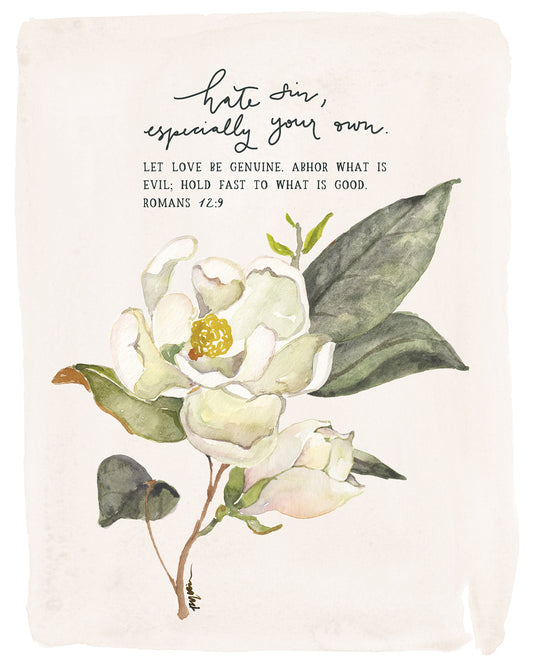 hate sin,
especially your own.
LET LOVE BE GENUINE. ABHOR WHAT IS
EVIL; HOLD FAST TO WHAT IS GOOD.
ROMANS 12:9